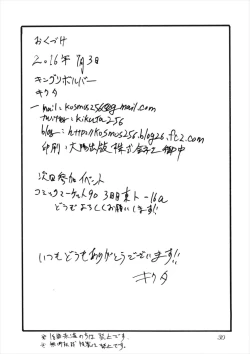 おくづけ
2016年 7月3日
キングリボルバー
キクタ
mail: kosmos256@g-mail.com
twitter: kikuta256
blog: http://kosmos256.blog26.fc2.com
印刷: 大陽出版株式会社 御中
次回参加イベント
コミックマーケット90 3日目 東ト-16a
どうぞよろしくお願いします!
いつもどうもありがとうございます!!
キクタ
無断転載は禁止です。
30